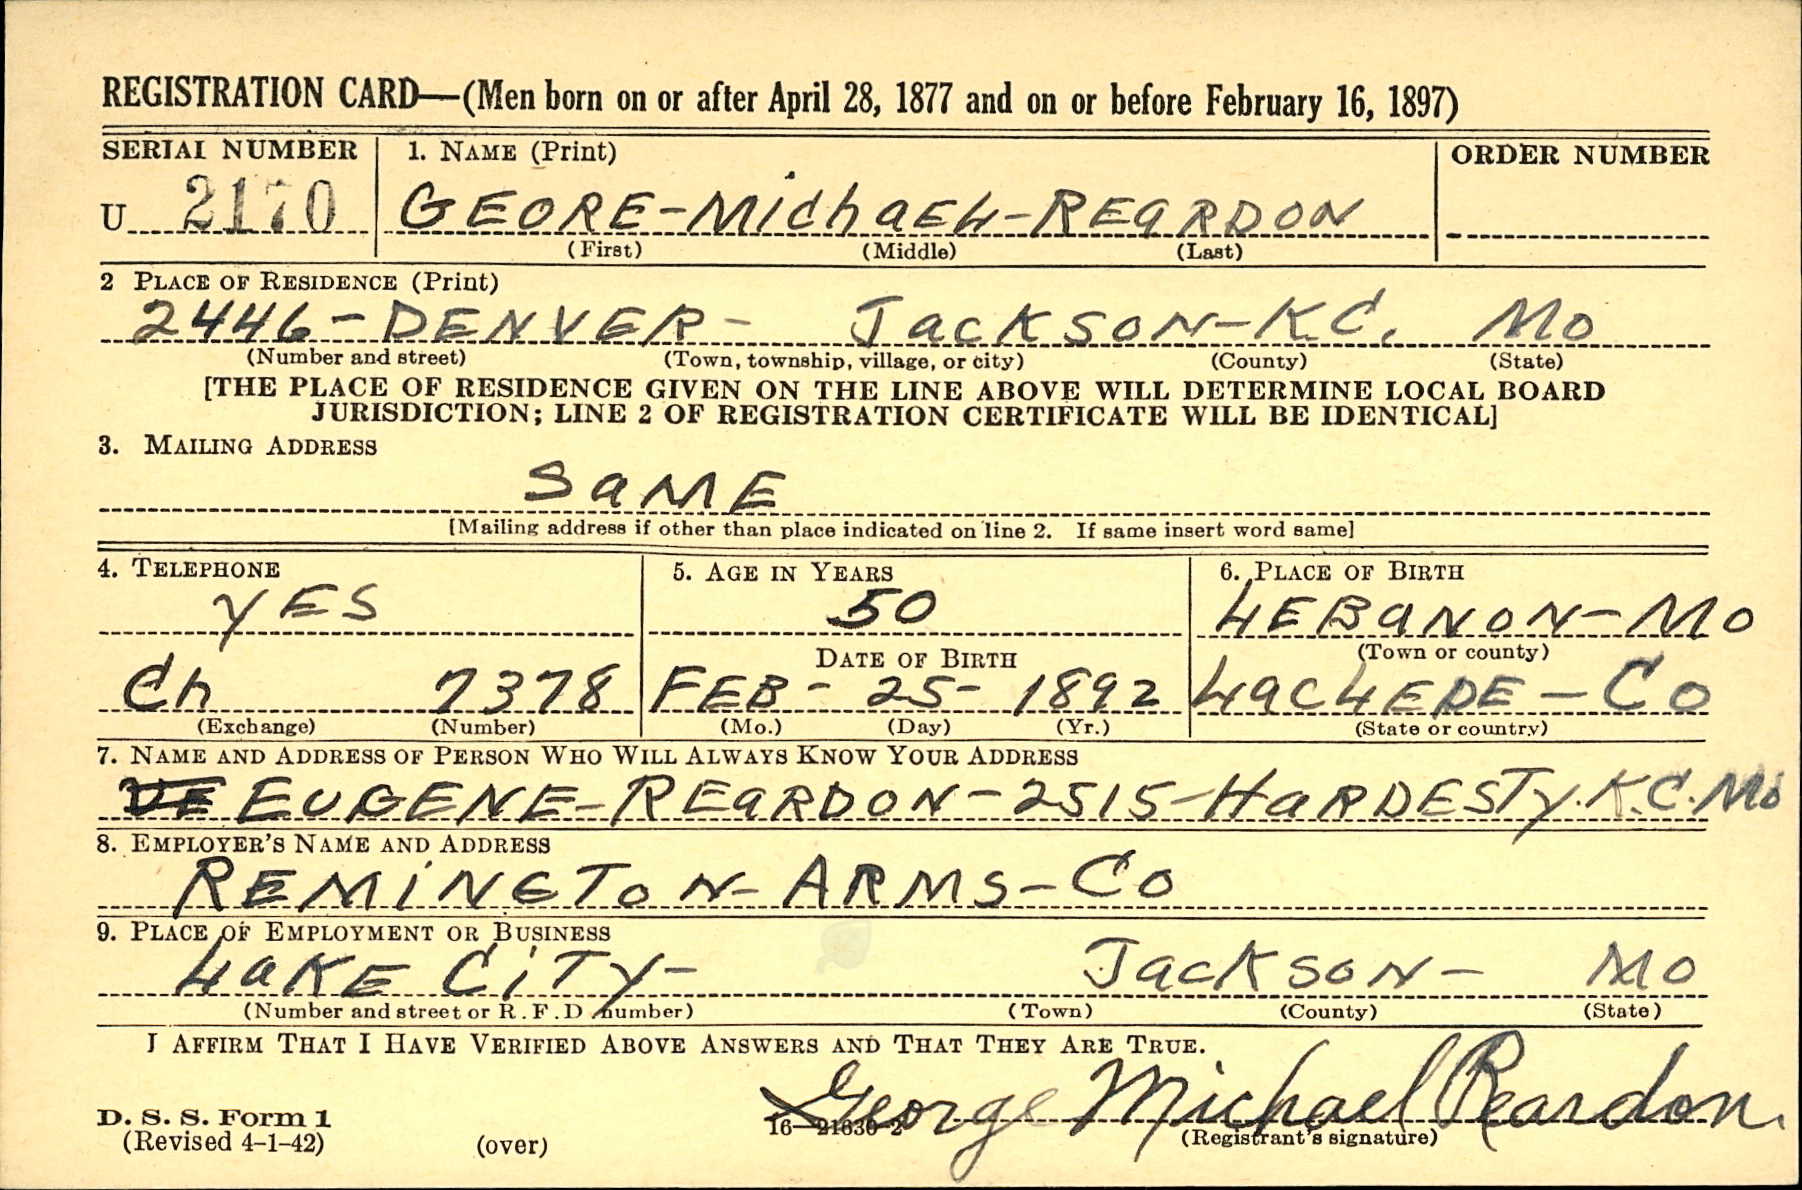 REGISTRATION CARD—(Men born on or after April 28, 1877 and on or before February 16, 1897)
SERIAL NUMBER 1. NAME (Print) ORDER NUMBER
U 2170 GEORE-MichaEL-REaRDON
(First) (Middle) (Last)
2 PLACE OF RESIDENCE (Print)
2446-DENVER- JacKSON-K.C. Mo
(Number and street) (Town, township, village, or city) (County) (State)
[THE PLACE OF RESIDENCE GIVEN ON THE LINE ABOVE WILL DETERMINE LOCAL BOARD
JURISDICTION; LINE 2 OF REGISTRATION CERTIFICATE WILL BE IDENTICAL]
3. MAILING ADDRESS
SaME
[Mailing address if other than place indicated on line 2. If same insert word same]
4. TELEPHONE 5. AGE IN YEARS 6. PLACE OF BIRTH
YES 50 LEBaNON-Mo
DATE OF BIRTH (Town or county)
Ch 7378 FEB- 25- 1892 LacLEDE-Co
(Exchange) (Number) (Mo.) (Day) (Yr.) (State or country)
7. NAME AND ADDRESS OF PERSON WHO WILL ALWAYS KNOW YOUR ADDRESS
EUGENE-REaRDON-2515-HaRDESTy.K.C.Mo
8. EMPLOYER'S NAME AND ADDRESS
REMiNGToN-ARMS-Co
9. PLACE OF EMPLOYMENT OR BUSINESS
LaKE CiTy- JacKSoN- Mo
(Number and street or R.F.D. number) (Town) (County) (State)
I AFFIRM THAT I HAVE VERIFIED ABOVE ANSWERS AND THAT THEY ARE TRUE.
George Michael Reardon.
D. S. S. Form 1 16—21630-2 (Registrant's signature)
(Revised 4-1-42) (over)